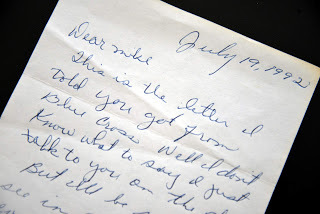 July 19, 1992
Dear Mike
This is the letter I
told you got from
Blue Cross. Well I don't
know what to say I just
talk to you on the
But I'll be
see in